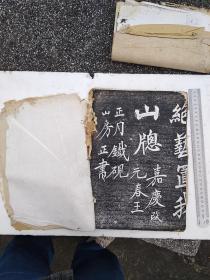 絶藝冝我
山牕 嘉慶改
元春王
正月鐵硯
山房正書